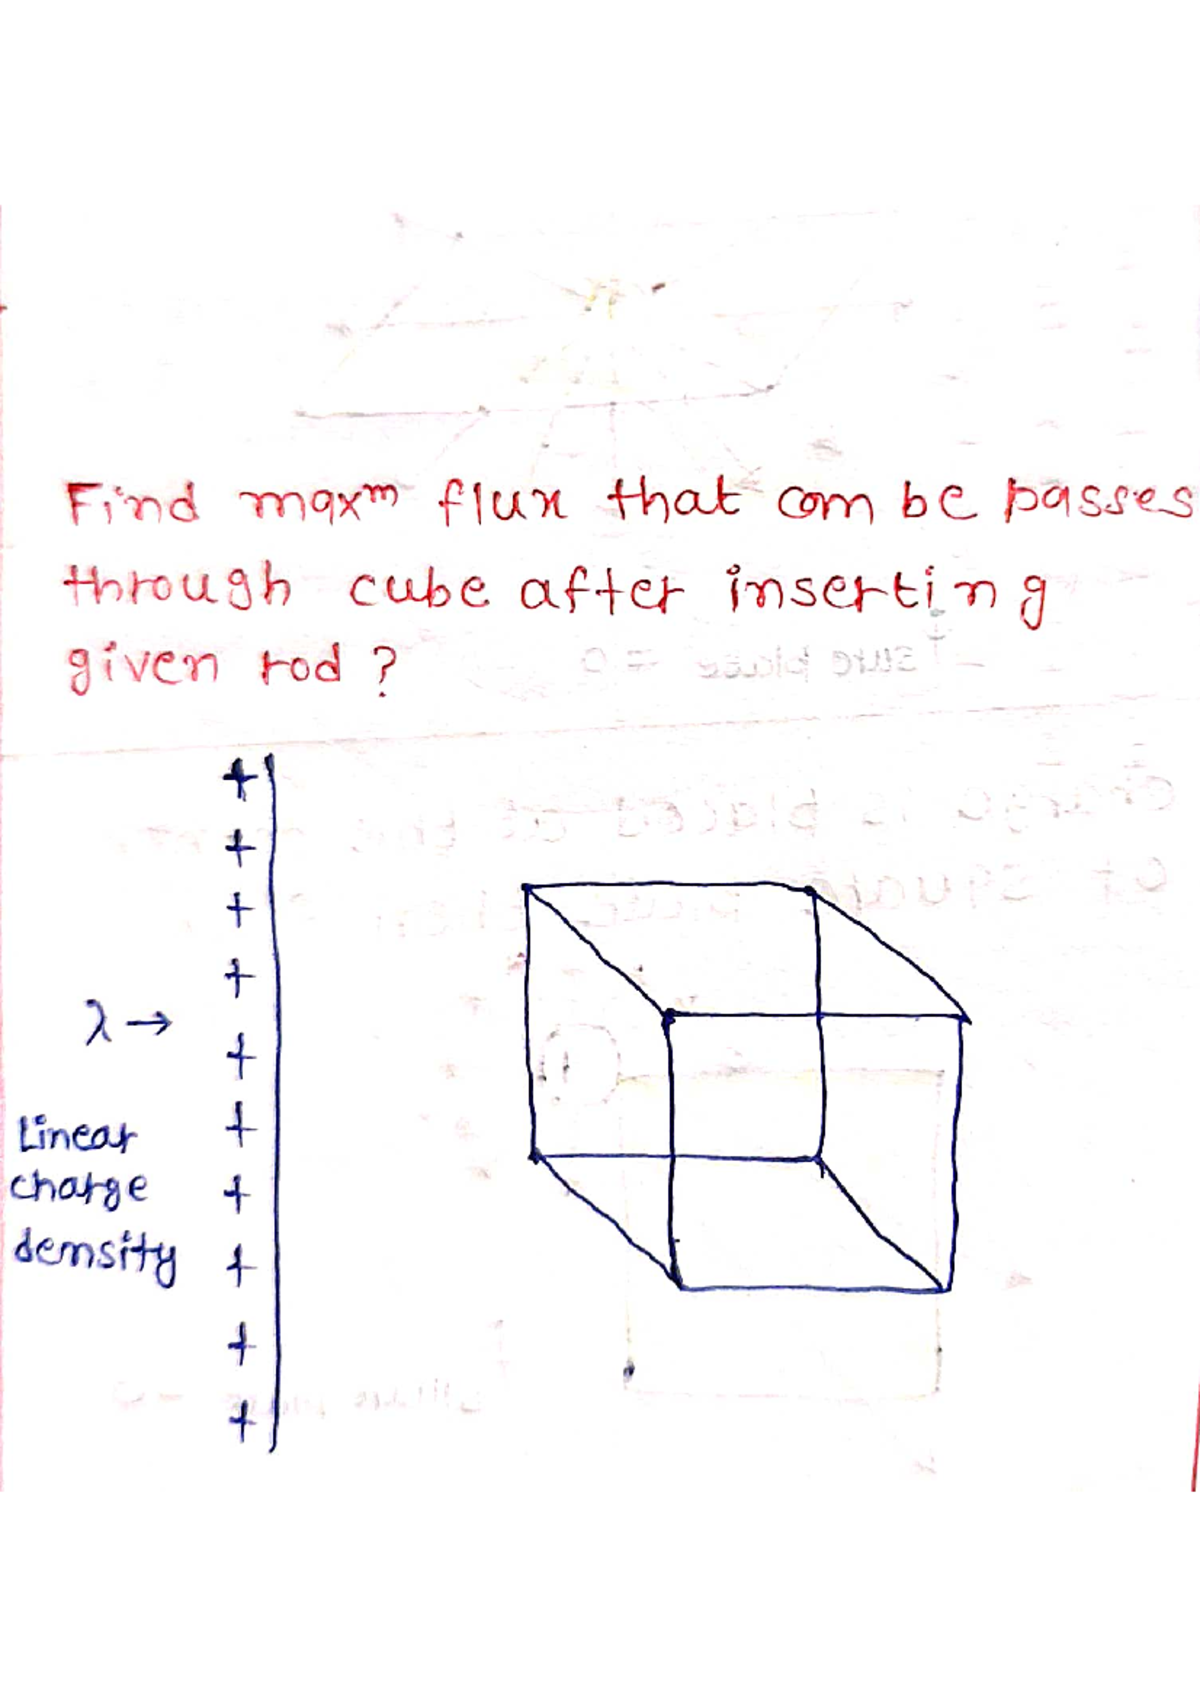 Find maxm flux that com be passes
through cube after inserting
given rod ?
+
+
+
+
λ →
+
Linear
+
charge
+
density
+
+
+